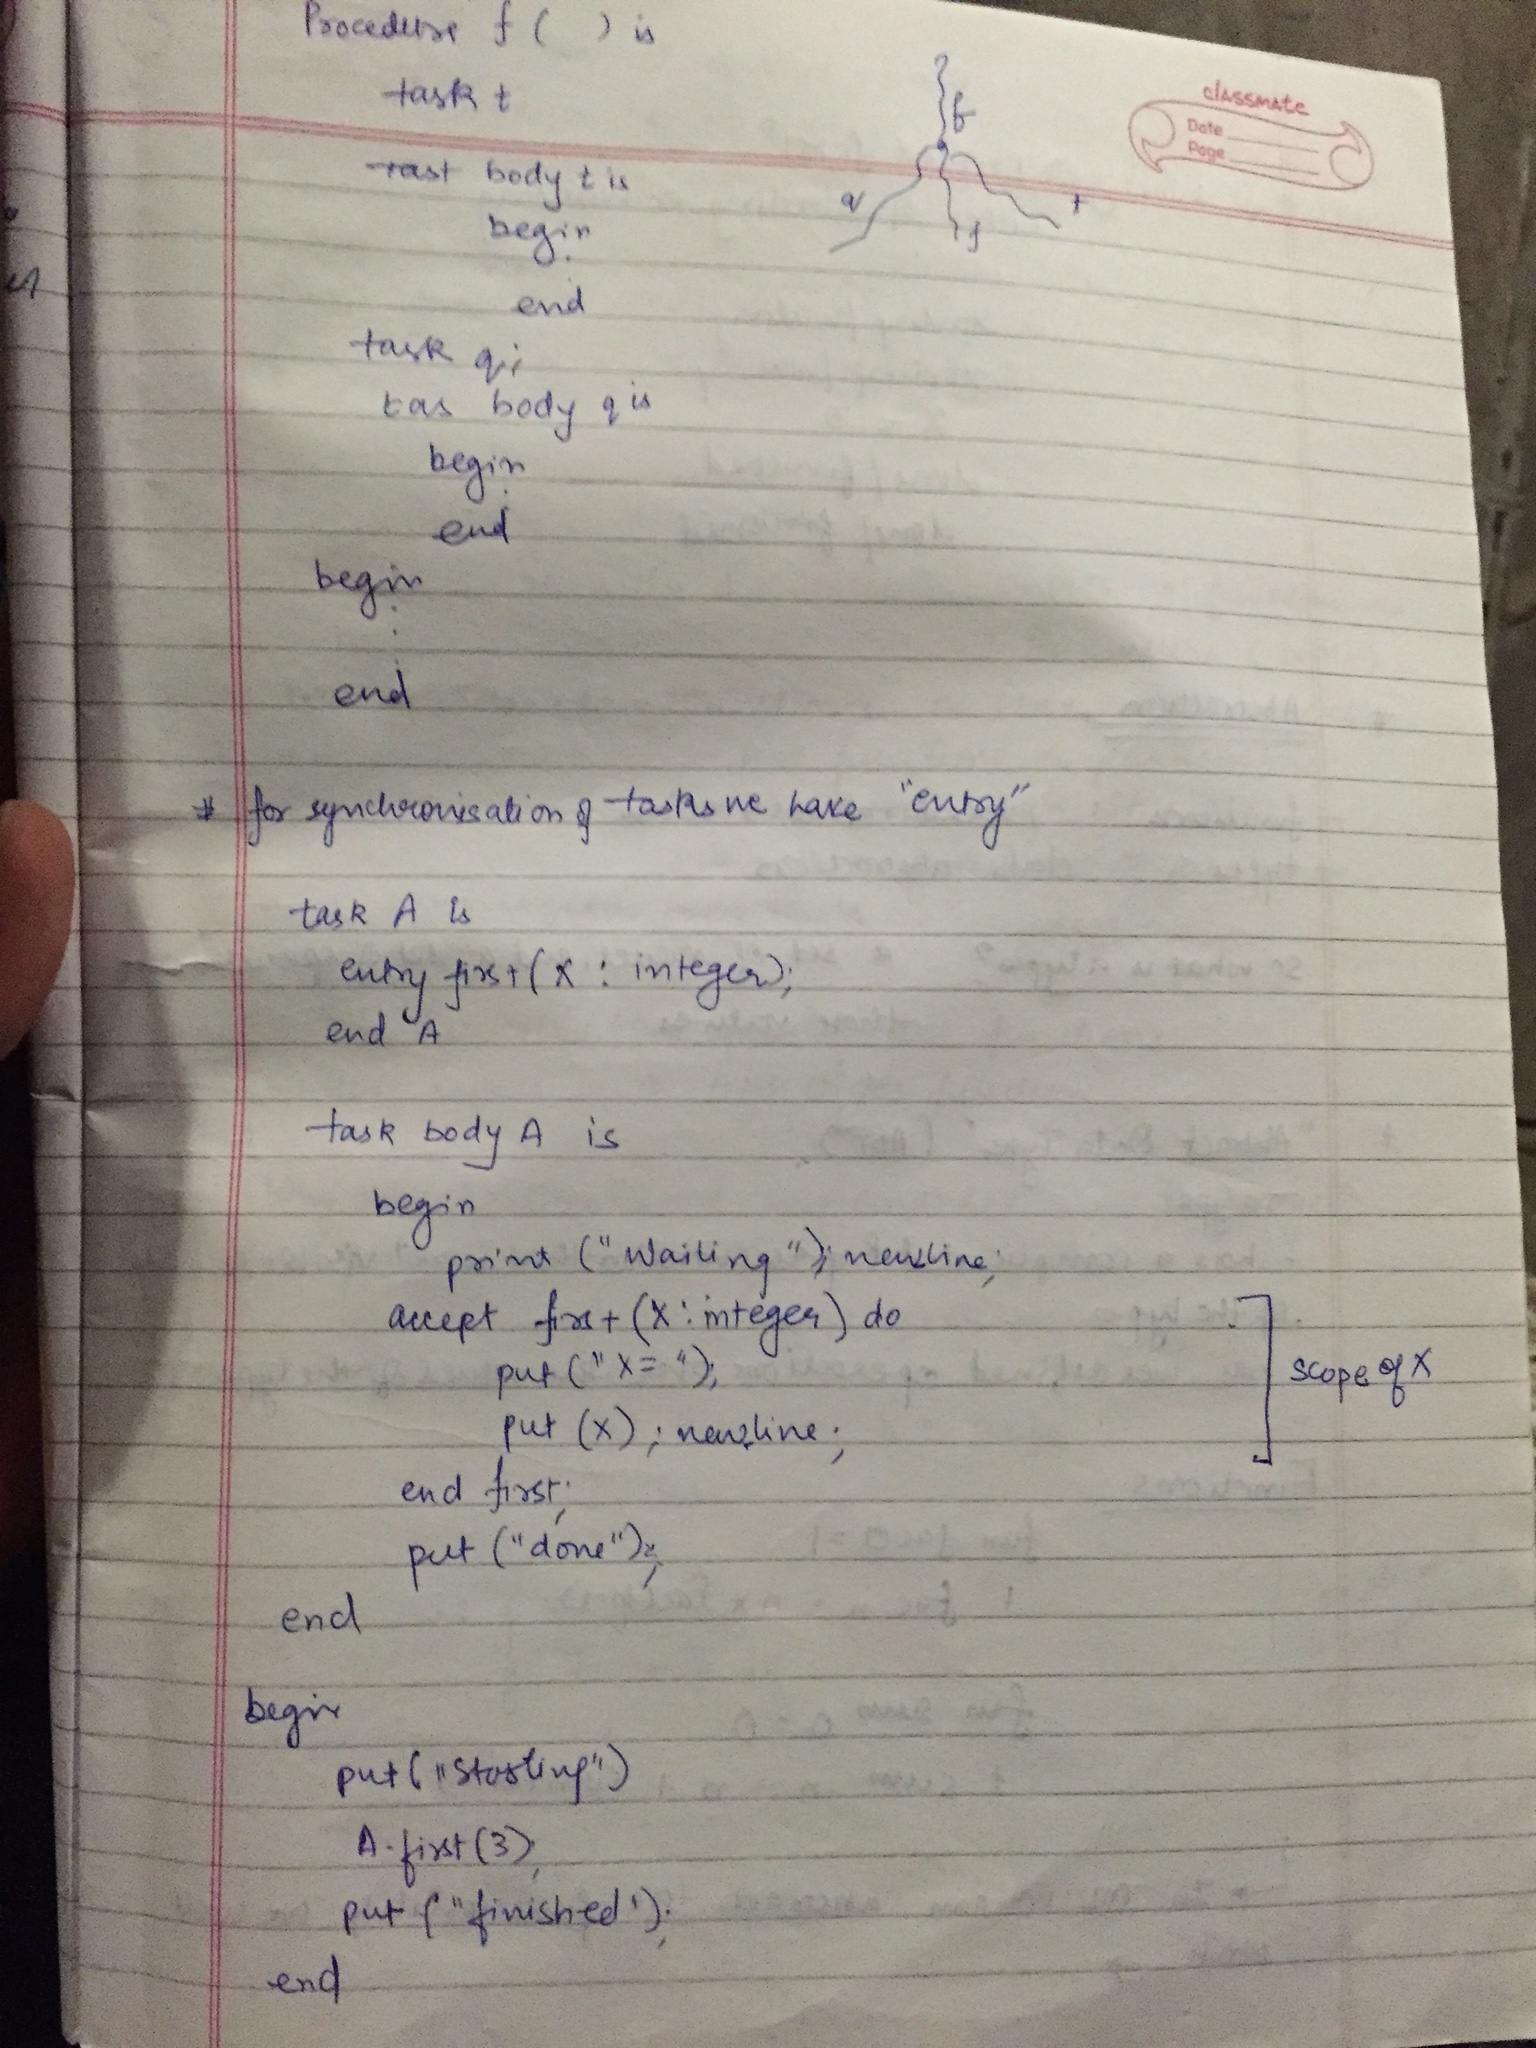 Procedure f ( ) is
task t
classmate
Date
Page
f
tast body t is
q f t
begin
end
task q;
tas body q is
begin
end
begin
end
* for synchronisation of tasks we have "entry"
task A is
entry first(X : integer);
end A
task body A is
begin
print ("Waiting"); newline;
accept first (X : integer) do
put ("X= ");
scope of X
put (x) ; newline ;
end first;
put ("done");
end
begin
put("Starting")
A.first(3);
put ("finished');
end